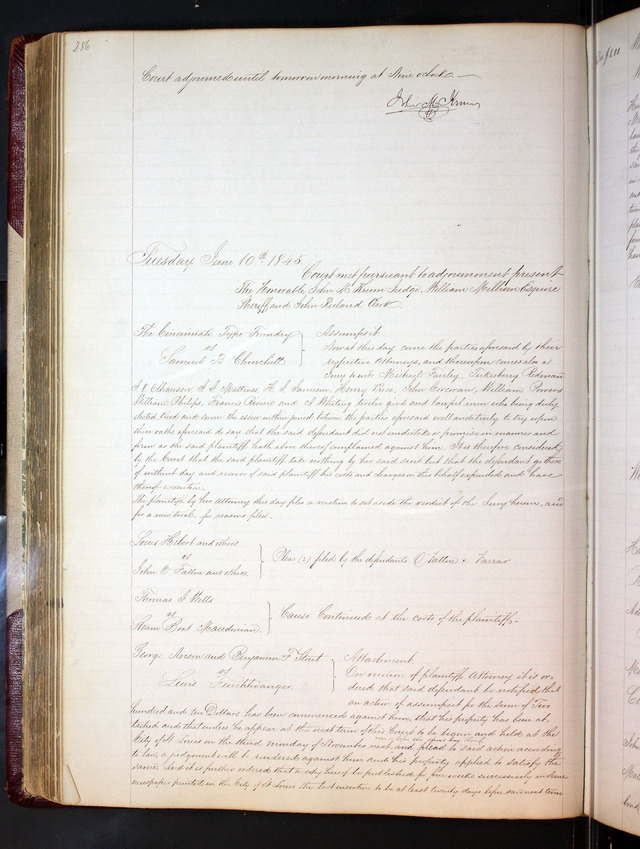 286
Court adjourned until tomorrow morning at Nine oclock.
John M. Krum
Tuesday June 10th 1845
Court met pursuant to adjournment present
The Honorable John M. Krum Judge, William Milburn Esquire
Sheriff and John Ruland Clerk
The Cincinnati Type Foundry
vs
Samuel B Churchill
Assumpsit
Now at this day come the parties aforesaid by their
respective attorneys, and thereupon comes also a
Jury to wit Michael Finley, Redman
J. S. Mattison, H. S. Henry Rice, John Corcoran, William Powers
William Philips, Francis and J Whiting twelve good and lawful men who being duly
elected tried and sworn the issue within joined between the parties aforesaid well and truly to try upon
their oaths aforesaid do say that the said defendant did not undertake or promise in manner and
form as the said plaintiff hath above thereof complained against him. It is therefore considered
by the Court that the said plaintiff take nothing by her said suit but that the defendant go there
of without day and recover of said plaintiff his costs and charges in this behalf expended and have
thereof execution.
The plaintiff by her Attorney this day files a motion to set aside the verdict of the Jury herein, and
for a new trial, for reasons filed.
Louis Hebert and others
vs
John O Fallon and others
Pleas (2) filed by the defendants O'Fallon & Farrar
Thomas J Wells
vs
Steam Boat Macedonian
Cause Continued at the costs of the plaintiff.
George Anson and Benjamin F Stout
vs
Louis Feuchtwanger
Attachment
On motion of plaintiffs Attorney it is or-
dered that said defendant be notified that
an action of assumpsit for the sum of Two
hundred and ten Dollars has been commenced against him, that his property has been at-
tached and that unless he appear at the next term of this Court to be begun and held at the
City of St Louis on the third monday of November next, and plead to said action according
to law, a judgment will be rendered against him and his property applied to satisfy the
same. And it is further ordered that a copy hereof be published for four weeks successively in some
newspaper printed in the City of St Louis the last insertion to be at least twenty days before said next term